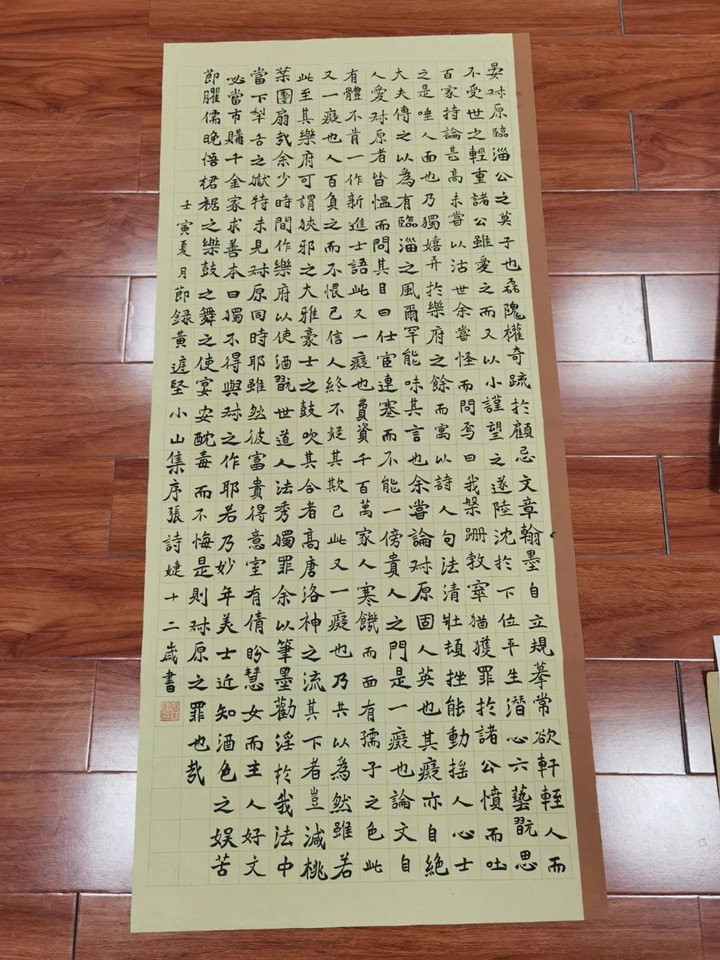 晏叔原臨淄公之莫子也磊隗權奇疏於顧忌文章翰墨自立規摹常欲軒輊人而
不受世之輕重諸公雖愛之而又以小謹望之遂陸沈於下位平生潛心六藝翫思
百家持論甚高未嘗以沽世余嘗怪而問焉曰我槃跚勃窣猶獲罪於諸公憤而吐
之是唾人面也乃獨嬉弄於樂府之餘而寓以詩人句法清壯頓挫能動搖人心士
大夫傳之以為有臨淄之風爾罕能味其言也余嘗論叔原固人英也其癡亦自絕
人愛叔原者皆慍而問其目曰仕宦連蹇而不能一傍貴人之門是一癡也論文自
有體不肯一作新進士語此又一癡也費資千百萬家人寒饑而面有孺子之色此
又一癡也人百負之而不恨己信人終不疑其欺己此又一癡也乃共以為然雖若
此至其樂府可謂狹邪之大雅豪士之鼓吹其合者高唐洛神之流其下者豈減桃
葉團扇哉余少時間作樂府以使酒翫世道人法秀獨罪余以筆墨勸淫於我法中
當下犁舌之獄特未見叔原同時耶雖然彼富貴得意室有倩盼慧女而主人好文
必當市購千金家求善本曰獨不得與叔之作耶若乃妙年美士近知酒色之娛苦
節臞儒晚悟裙裾之樂鼓之舞之使宴安酖毒而不悔是則叔原之罪也哉
壬寅夏月節錄黃庭堅小山集序張詩婕十二歲書